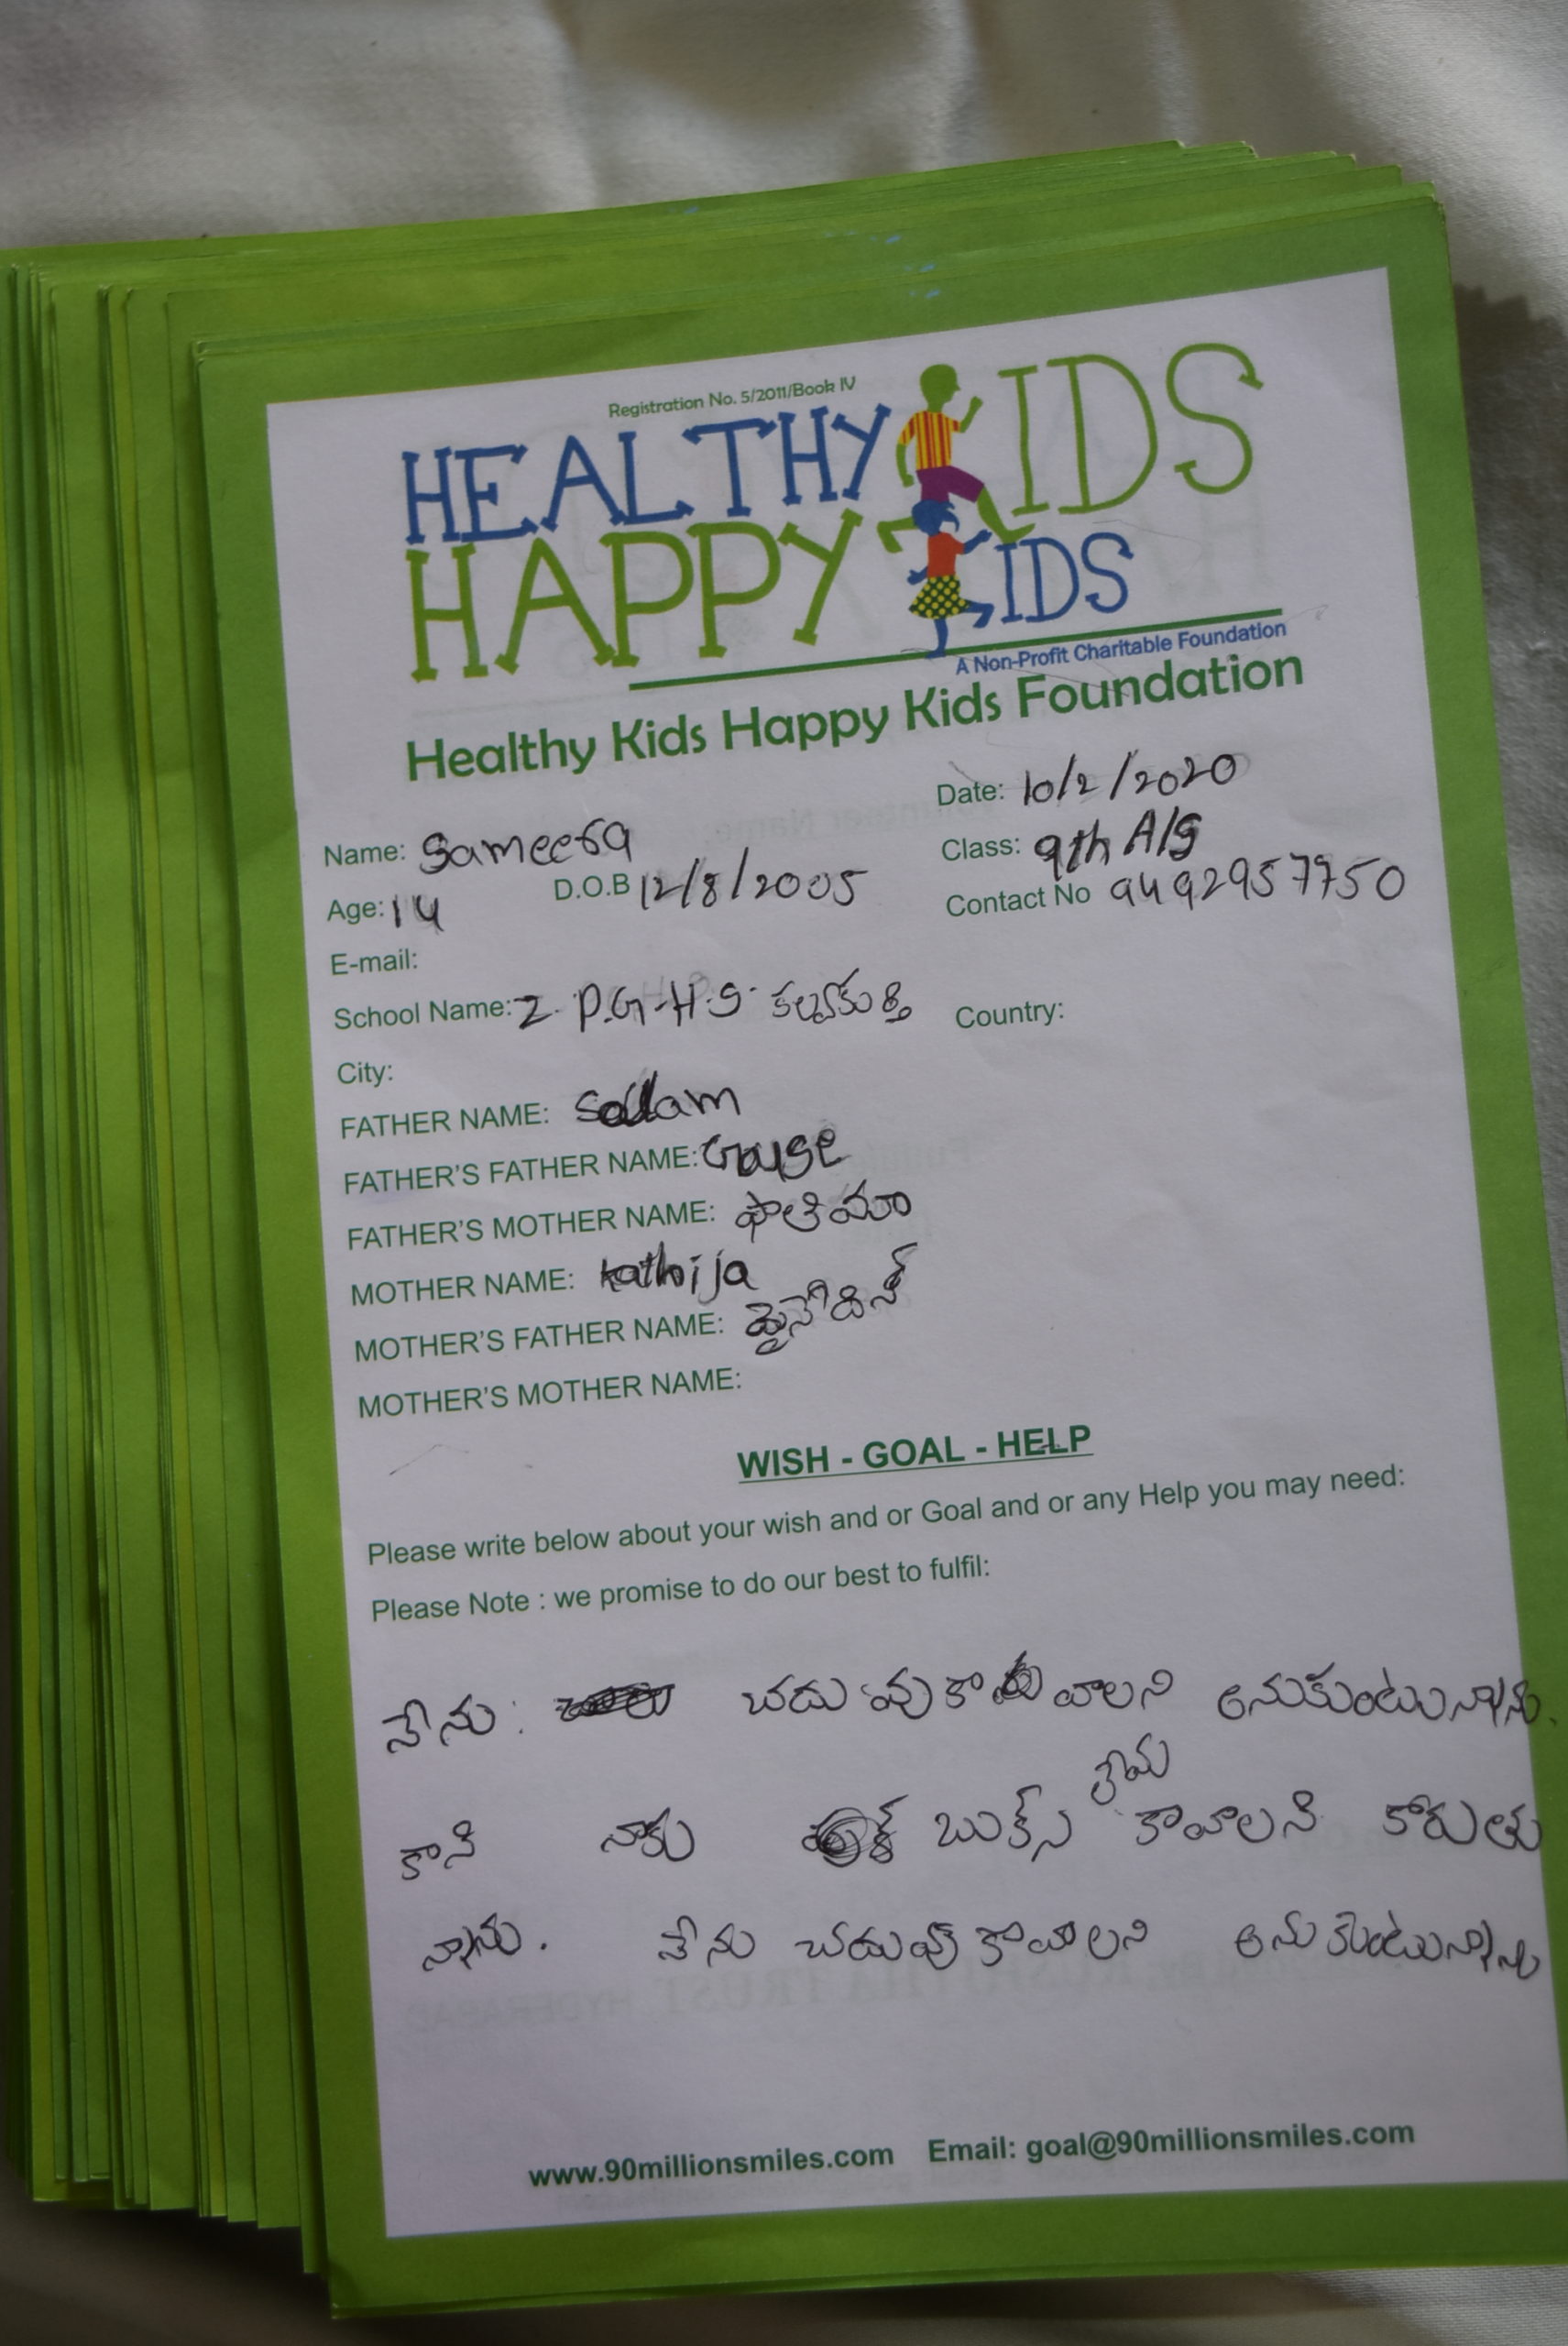 Registration No. 5/2011/Book IV
HEALTHY KIDS
HAPPY KIDS
A Non-Profit Charitable Foundation
Healthy Kids Happy Kids Foundation
Date: 10/2/2020
Name: Sameera
Class: 9th A/S
Age: 14 D.O.B 12/8/2005
Contact No 9492957750
E-mail:
School Name: Z.P.G.H.S. కల్వకుర్తి Country:
City:
FATHER NAME: Sallam
FATHER'S FATHER NAME: Gouse
FATHER'S MOTHER NAME: ఫాతిమా
MOTHER NAME: kathija
MOTHER'S FATHER NAME:
MOTHER'S MOTHER NAME:
WISH - GOAL - HELP
Please write below about your wish and or Goal and or any Help you may need:
Please Note : we promise to do our best to fulfil:
నేను: చదువు కావాలని అనుకుంటున్నాను.
కాని నాకు బుక్స్ లేమ కావాలని కోరుతు
న్నాను. నేను చదువు కావాలని అనుకుంటున్నాను
www.90millionsmiles.com Email: goal@90millionsmiles.com